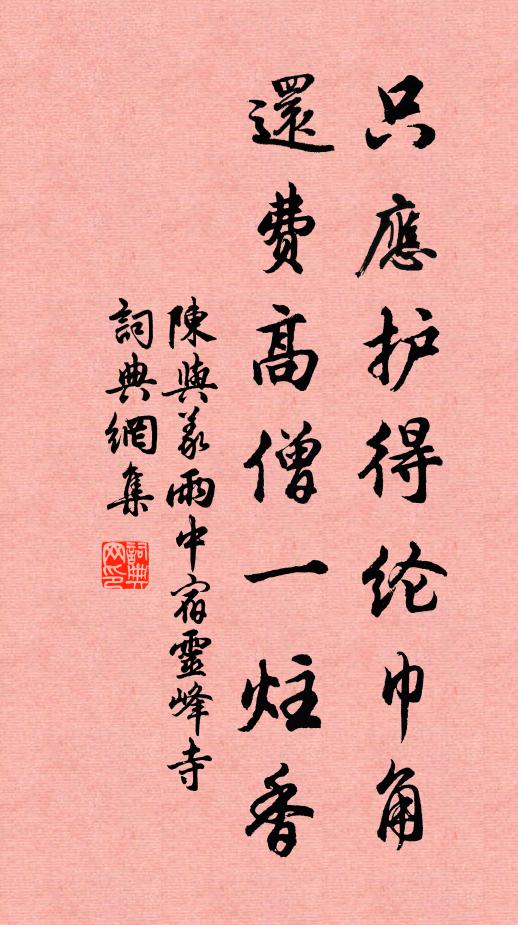 只應护得纶巾角
還费高僧一炷香
陳與义雨中宿靈峰寺
詞典網集
詞典网印